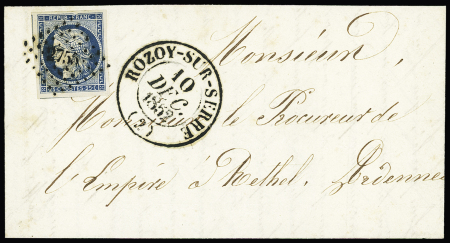 REPUB. FRANC.
ROZOY-SUR-SERRE
10
DEC.
1852
(2)
Monsieur,
Monsieur le Procureur de
l'Empire à Rethel. Ardennes